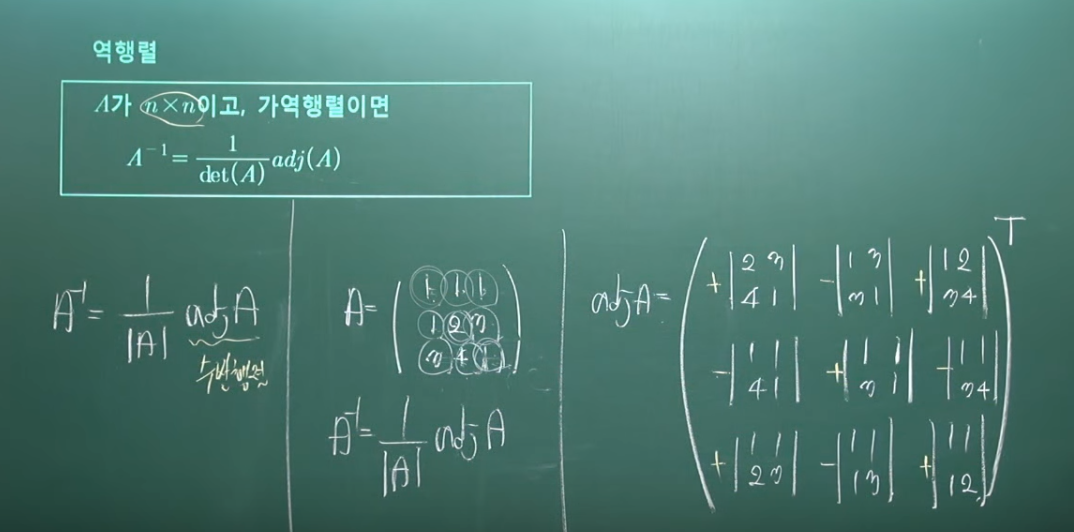 역행렬
A가 n×n이고, 가역행렬이면
A⁻¹ = 1/det(A) adj(A)
A⁻¹ = 1/|A| adj A
수반행렬
A = (1 1 1
1 2 3
3 4 1)
A⁻¹ = 1/|A| adj A
adj A = ( +|2 3; 4 1| -|1 3; 3 1| +|1 2; 3 4|
-|1 1; 4 1| +|1 1; 3 1| -|1 1; 3 4|
+|1 1; 2 3| -|1 1; 1 3| +|1 1; 1 2| )ᵀ